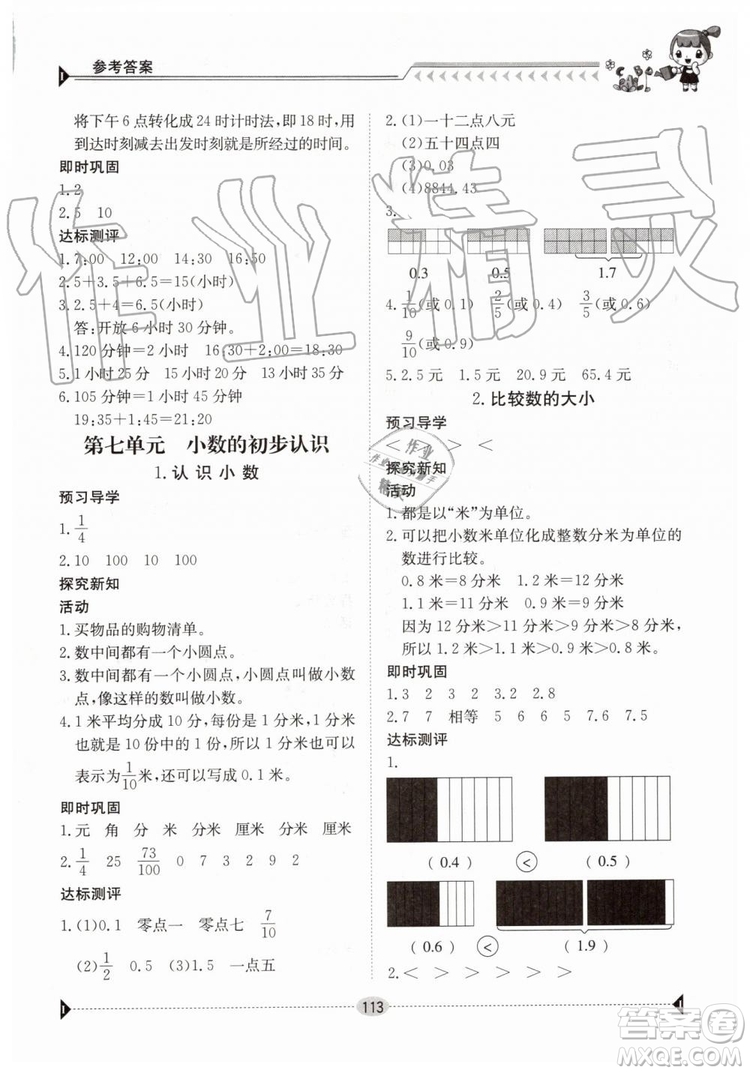 参考答案
将下午 6 点转化成 24 时计时法，即 18 时，用
到达时刻减去出发时刻就是所经过的时间。
即时巩固
1.2
2.5 10
达标测评
1.7:00 12:00 14:30 16:50
2.5+3.5+6.5=15(小时)
3.2.5+4=6.5(小时)
答:开放 6 小时 30 分钟。
4.120 分钟=2 小时 16:30+2:00=18:30
5.1 小时 25 分钟 1 小时 35 分钟
6.105 分钟=1 小时 45 分钟
19:35+1:45=21:20
第七单元 小数的初步认识
1.认识小数
预习导学
1. 1/4
2.10 100 10 100
探究新知
活动
1.买物品的购物清单。
2.数中间都有一个小圆点。
3.数中间都有一个小圆点,小圆点叫做小数
点,像这样的数叫做小数。
4.1 米平均分成 10 份,每份是 1 分米,1 分米
也就是 10 份中的 1 份,所以 1 分米可以
表示为 1/10 米,还可以写成 0.1 米。
即时巩固
1.元 角 分 米 分米 厘米 厘米
2. 1/4 25 73/100 0 7 3 2 9 2
达标测评
1.(1)0.1 零点一 零点七 7/10
(2) 1/2 0.5 (3)1.5 一点五
2.(1)一十二点八元
(2)五十四点四
(3)0.03
(4)8844.43
3.
0.3 0.5 1.7
4. 1/10(或 0.1) 2/5(或 0.4) 3/5(或 0.6)
9/10(或 0.9)
5.2.5 元 1.5 元 20.9 元 65.4 元
2.比较数的大小
预习导学
< < > <
探究新知
活动
1.都是以“米”为单位。
2.可以把小数米单位化成整数分米为单位的
数进行比较。
0.8 米=8 分米 1.2 米=12 分米
1.1 米=11 分米 0.9 米=9 分米
因为 12 分米>11 分米>9 分米>8 分米
所以 1.2 米>1.1 米>0.9 米>0.8 米
即时巩固
1.3 2 3 2 2.8
2.7 7 相等 5 6 6 5 7.6 7.5
达标测评
1.
(0.4) < (0.5)
(0.6) < (1.9)
2.< > > > > >
113
作业精灵
作业
精灵
答案圈
MXQE.COM